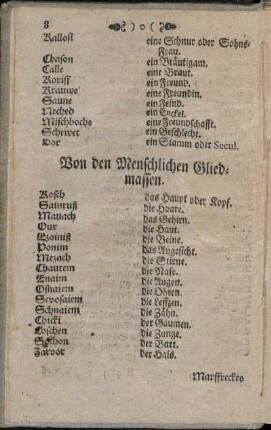 8 ) o (
Kallost eine Schnur oder Sohns-
Frau.
Chason ein Bräutigam.
Calle eine Braut.
Koriff ein Freund.
Krauwe eine Freundin.
Saune ein Feind.
Neched ein Enckel.
Mischboche eine Freundschafft.
Schewet ein Geschlecht.
Dor ein Stamm oder Secul.
Von den Menschlichen Glied-
massen.
Rosch das Haupt oder Kopf.
Saintuß die Haare.
Mauach das Gehirn.
Our die Haut.
Ezoiniß die Beine.
Ponim das Angesicht.
Mezach die Stirne.
Chautem die Nase.
Enaim die Augen.
Osnaiem die Ohren.
Sevosaiem die Lefftzen.
Schnaiem die Zähn.
Chicki der Gaumen.
Loschen die Zunge.
der Bart.
Zavor der Hals.
Marffreckes